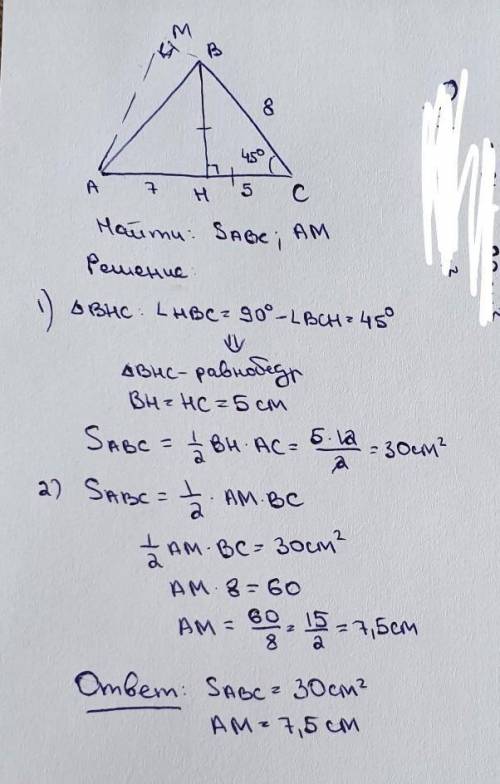 M
B
8
45°
A 7 H 5 C
Найти: SABC; AM
Решение:
1) ΔBHC: ∠HBC = 90° - ∠BCH = 45°
⇓
ΔBHC - равнобедр
BH = HC = 5 см
SABC = 1/2 BH · AC = 5·12/2 = 30 см²
2) SABC = 1/2 · AM · BC
1/2 AM · BC = 30 см²
AM · 8 = 60
AM = 60/8 = 15/2 = 7,5 см
Ответ: SABC = 30 см²
AM = 7,5 см